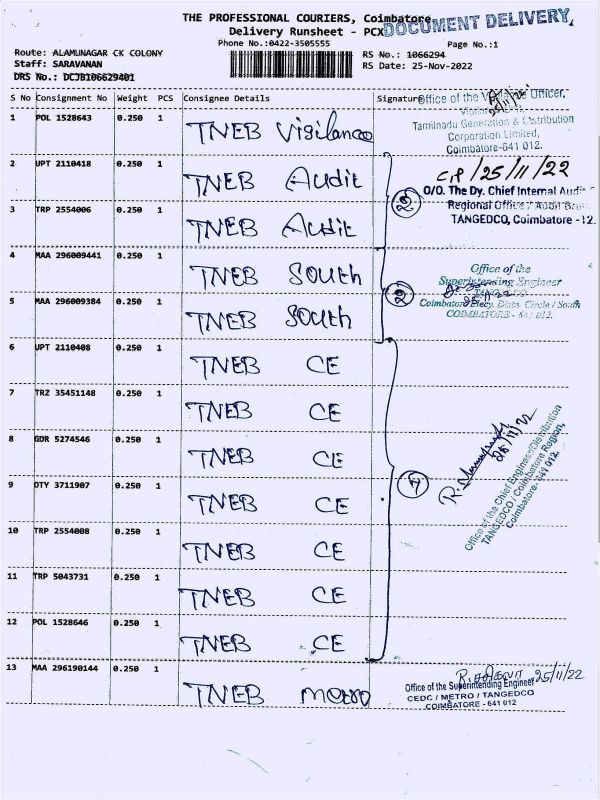 THE PROFESSIONAL COURIERS, Coimbatore
Delivery Runsheet - PCX
DOCUMENT DELIVERY,
Phone No.:0422-3505555
Page No.:1
Route: ALAMUNAGAR CK COLONY
RS No.: 1066294
Staff: SARAVANAN
RS Date: 25-Nov-2022
DRS No.: DCJB106629401
S No Consignment No Weight PCS Consignee Details Signature
Office of the Vigilance Officer,
1 POL 1528643 0.250 1 TNEB Vigilance
Tamilnadu Generation & Distribution
Corporation Limited,
Coimbatore-641 012.
2 UPT 2110418 0.250 1 TNEB Audit
25/11/22
O/O. The Dy. Chief Internal Audit
Regional Office / Audit
TANGEDCO, Coimbatore - 12.
3 TRP 2554006 0.250 1 TNEB Audit
2
4 MAA 296009441 0.250 1 TNEB South
Office of the
Superintending Engineer
TANGEDCO
Coimbatore Elecy. Distn. Circle / South
COIMBATORE - 641 012.
5 MAA 296009384 0.250 1 TNEB South
2
6 UPT 2110408 0.250 1 TNEB CE
7 TRZ 35451148 0.250 1 TNEB CE
8 GDR 5274546 0.250 1 TNEB CE
9 OTY 3711907 0.250 1 TNEB CE
7
25/11/22
Office of the Chief Engineer/Distribution
TANGEDCO / Coimbatore Region,
Coimbatore-641 012.
10 TRP 2554008 0.250 1 TNEB CE
11 TRP 5043731 0.250 1 TNEB CE
12 POL 1528646 0.250 1 TNEB CE
13 MAA 296190144 0.250 1 TNEB metro
25/11/22
Office of the Superintending Engineer
CEDC / METRO / TANGEDCO
COIMBATORE - 641 012